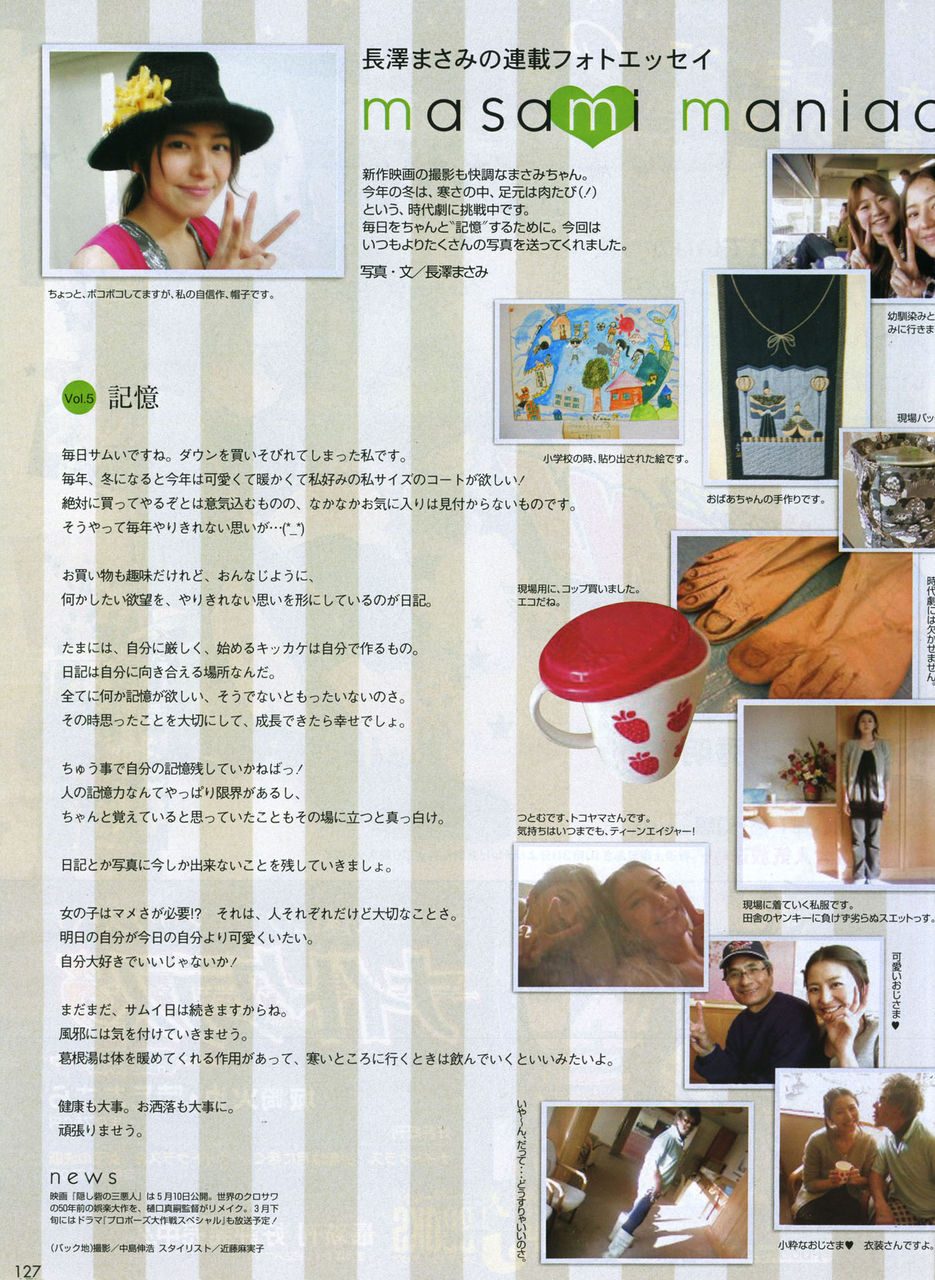 長澤まさみの連載フォトエッセイ
masami maniac
新作映画の撮影も快調なまさみちゃん。
今年の冬は、寒さの中、足元は肉たび(!)
という、時代劇に挑戦中です。
毎日をちゃんと"記憶"するために。今回は
いつもよりたくさんの写真を送ってくれました。
写真・文／長澤まさみ
ちょっと、ボコボコしてますが、私の自信作、帽子です。
幼馴染みと
みに行きま
小学校の時、貼り出された絵です。
おばあちゃんの手作りです。
現場バッ
Vol.5 記憶
毎日サムいですね。ダウンを買いそびれてしまった私です。
毎年、冬になると今年は可愛くて暖かくて私好みの私サイズのコートが欲しい!
絶対に買ってやるぞとは意気込むものの、なかなかお気に入りは見付からないものです。
そうやって毎年やりきれない思いが…(*_*)
お買い物も趣味だけれど、おんなじように、
何かしたい欲望を、やりきれない思いを形にしているのが日記。
たまには、自分に厳しく、始めるキッカケは自分で作るもの。
日記は自分に向き合える場所なんだ。
全てに何か記憶が欲しい、そうでないともったいないのさ。
その時思ったことを大切にして、成長できたら幸せでしょ。
ちゅう事で自分の記憶残していかねばっ!
人の記憶力なんてやっぱり限界があるし、
ちゃんと覚えていると思っていたこともその場に立つと真っ白け。
日記とか写真に今しか出来ないことを残していきましょ。
女の子はマメさが必要!?　それは、人それぞれだけど大切なことさ。
明日の自分が今日の自分より可愛くいたい。
自分大好きでいいじゃないか!
まだまだ、サムイ日は続きますからね。
風邪には気を付けていきませう。
葛根湯は体を暖めてくれる作用があって、寒いところに行くときは飲んでいくといいみたいよ。
健康も大事。お洒落も大事に。
頑張りませう。
現場用に、コップ買いました。
エコだね。
時代劇には欠かせません。
つとむです、トコヤマさんです。
気持ちはいつまでも、ティーンエイジャー!
現場に着ていく私服です。
田舎のヤンキーに負けず劣らぬスエットっす。
可愛いおじさま♥
いや〜ん、だって・・・どうすりゃいいのさ。
小粋なおじさま♥　衣装さんですよ。
news
映画「隠し砦の三悪人」は5月10日公開。世界のクロサワ
の50年前の娯楽大作を、樋口真嗣監督がリメイク。3月下
旬にはドラマ「プロポーズ大作戦スペシャル」も放送予定!
(バック地)撮影／中島伸浩 スタイリスト／近藤麻実子
127